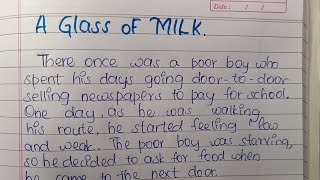 Date: / /
A GLASS OF MILK.
There once was a poor boy who
spent his days going door-to-door
selling newspapers to pay for school.
One day, as he was walking
his route, he started feeling low
and weak.. The poor boy was starving,
so he decided to ask for food when
he came to the next door.